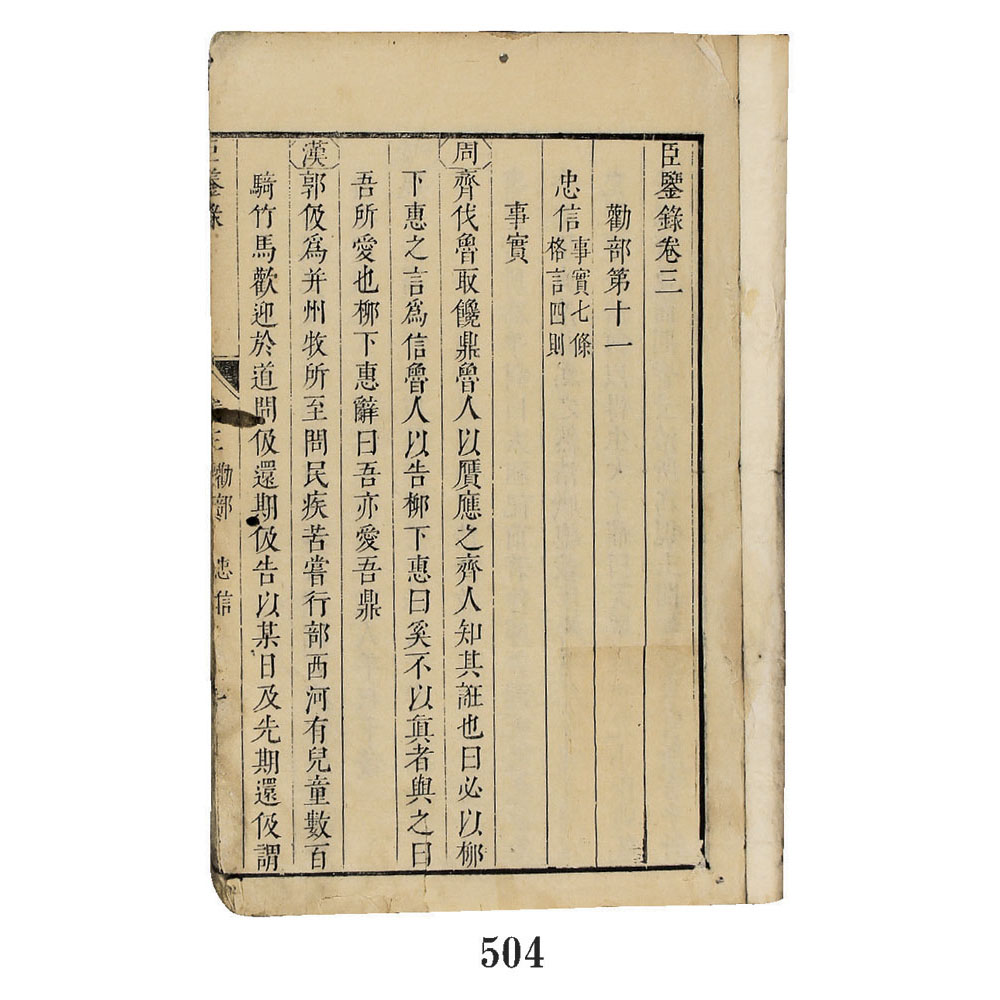 臣鑒錄卷三
勸部第十一
忠信 事實七條 格言四則
事實
周 齊伐魯取饞鼎魯人以贋應之齊人知其誑也曰必以柳
下惠之言爲信魯人以告柳下惠曰奚不以真者與之曰
吾所愛也柳下惠辭曰吾亦愛吾鼎
漢 郭伋爲并州牧所至問民疾苦嘗行部西河有兒童數百
騎竹馬歡迎於道問伋還期伋告以某日及先期還伋謂
臣鑒錄
卷三 勸部 忠信
504